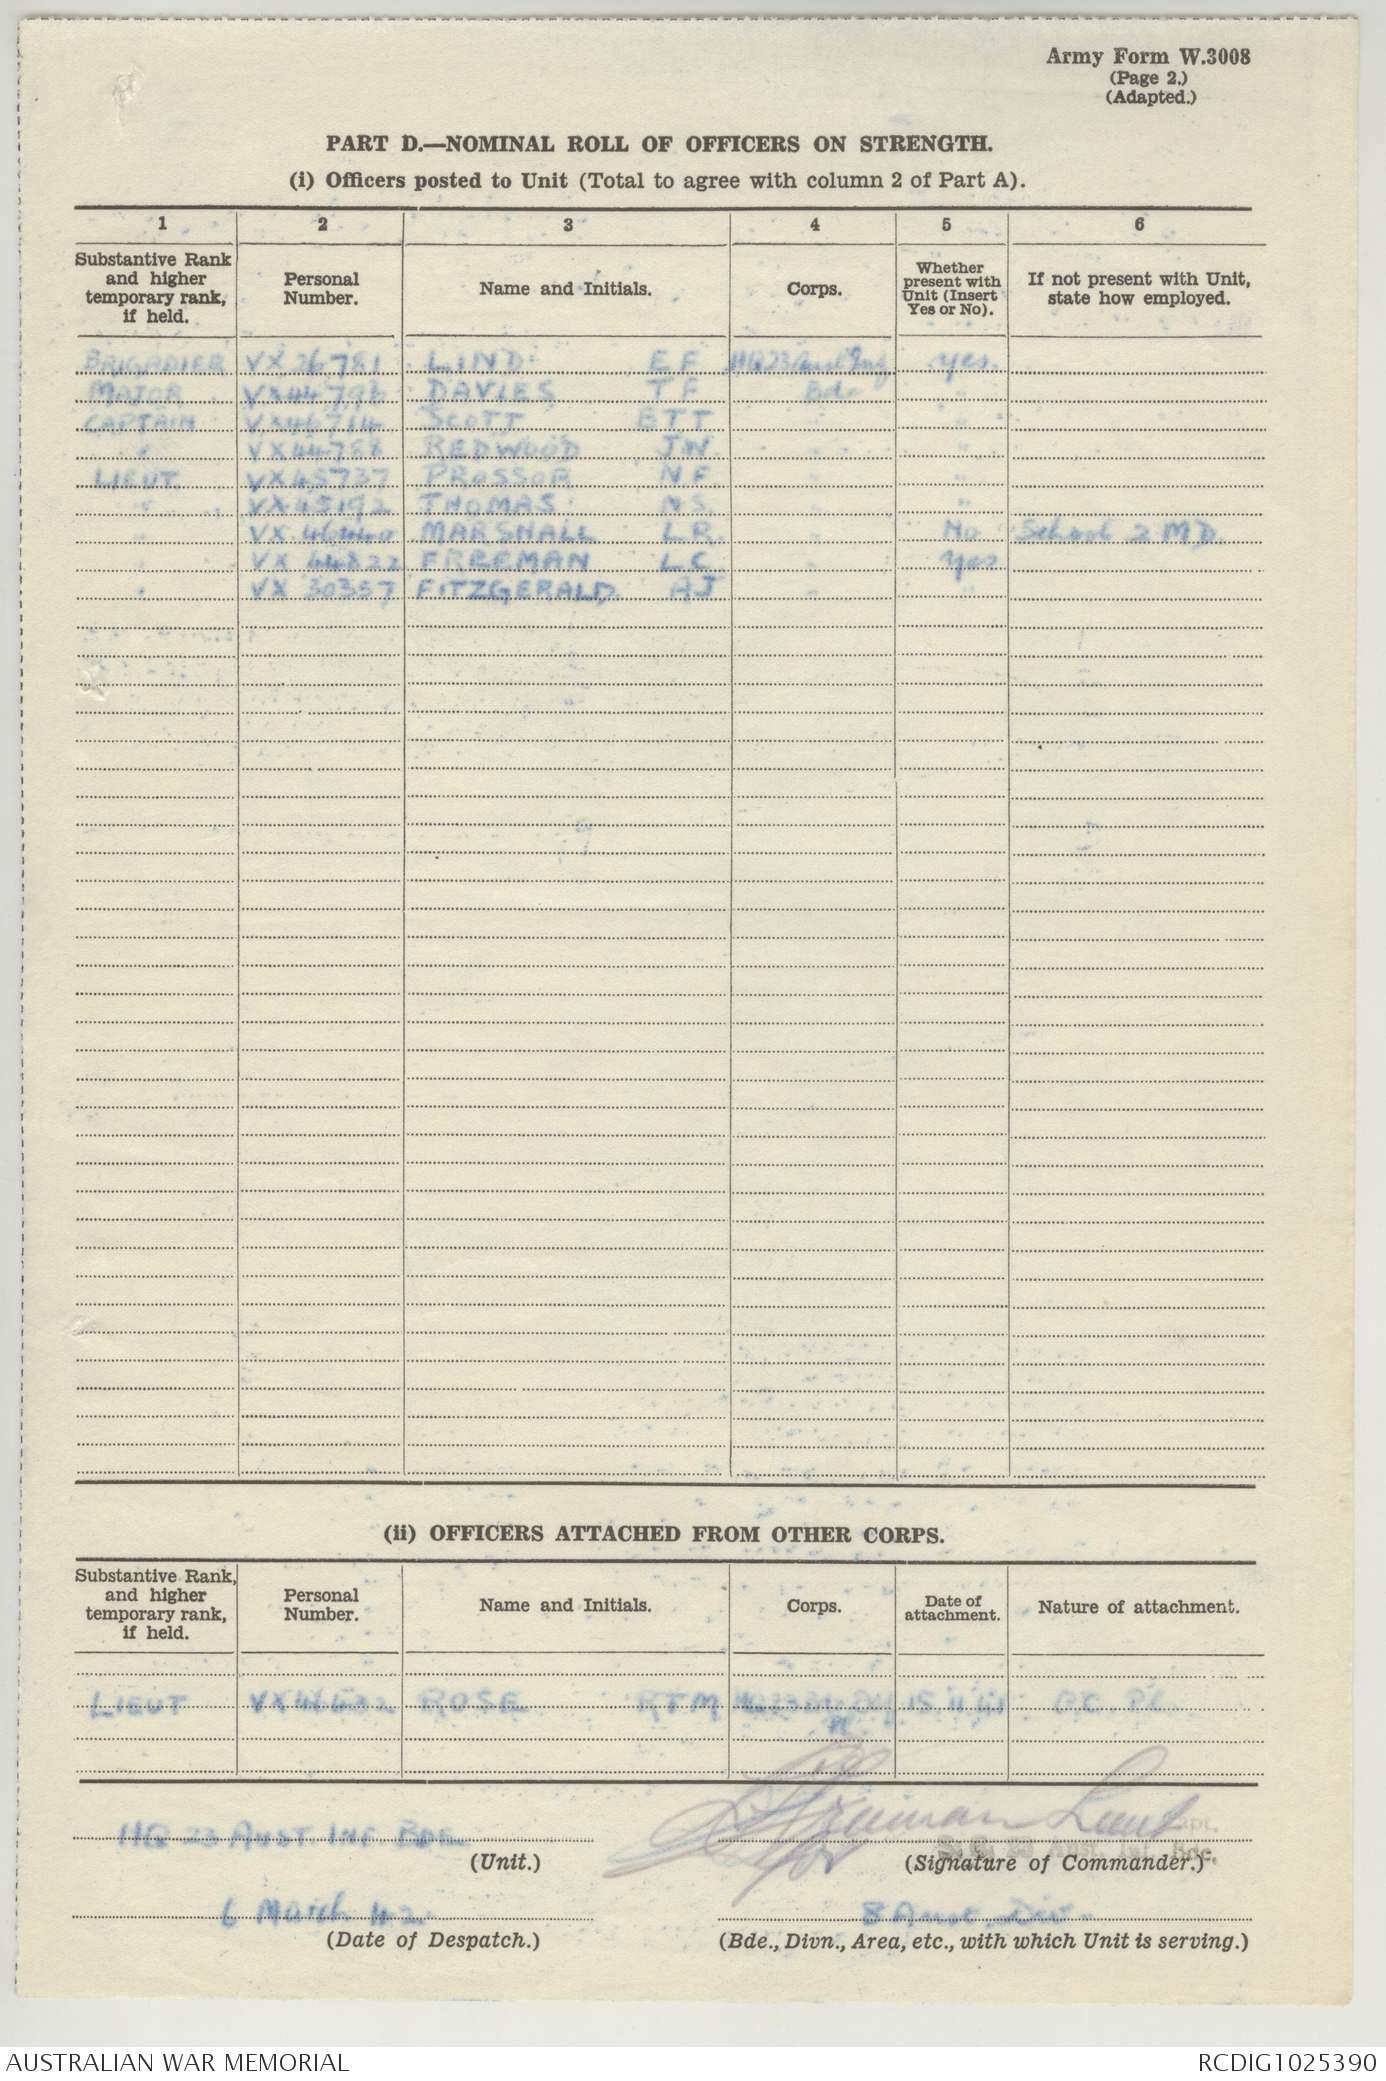 Army Form W.3008
(Page 2.)
(Adapted.)
PART D.—NOMINAL ROLL OF OFFICERS ON STRENGTH.
(i) Officers posted to Unit (Total to agree with column 2 of Part A).
1 2 3 4 5 6
Substantive Rank and higher temporary rank, if held. Personal Number. Name and Initials. Corps. Whether present with Unit (Insert Yes or No). If not present with Unit, state how employed.
BRIGADIER VX 26781 LIND E F HQ 23 Aust Inf yes.
MAJOR VX44796 DAVIES T F Bde "
CAPTAIN VX46714 SCOTT ETT "
" VX44788 REDWOOD JW. " "
LIEUT. VX45737 PROSSOR N F. " "
" VX45192 THOMAS NS. " "
" VX 46440 MARSHALL L R. " No School 2 M D.
" VX 44822 FREEMAN L C. " Yes
" VX 30357 FITZGERALD. AJ " "
(ii) OFFICERS ATTACHED FROM OTHER CORPS.
Substantive Rank, and higher temporary rank, if held. Personal Number. Name and Initials. Corps. Date of attachment. Nature of attachment.
LIEUT ROSE RTM 15.11.41
Freeman Lieut
for
HQ 23 AUST. INF BDE
(Unit.) (Signature of Commander.)
Aust. Inf. Bde.
March 42. 8 Aust. Div.
(Date of Despatch.) (Bde., Divn., Area, etc., with which Unit is serving.)
AUSTRALIAN WAR MEMORIAL RCDIG1025390